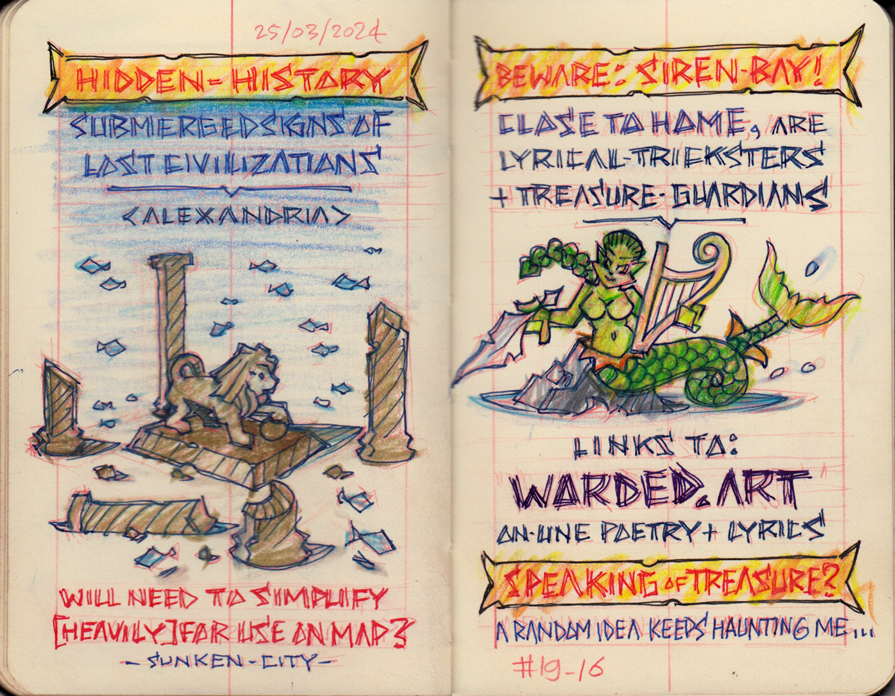 25/03/2024
HIDDEN-HISTORY
SUBMERGED SIGNS OF
LOST CIVILIZATIONS
<ALEXANDRIA>
WILL NEED TO SIMPLIFY
[HEAVILY] FOR USE ON MAP?
-SUNKEN-CITY-
BEWARE: SIREN-BAY!
CLOSE TO HOME, ARE
LYRICAL-TRICKSTERS
+ TREASURE-GUARDIANS
LINKS TO:
WARDED.ART
ON-LINE POETRY + LYRICS
SPEAKING OF TREASURE?
A RANDOM IDEA KEEPS HAUNTING ME...
#19_16